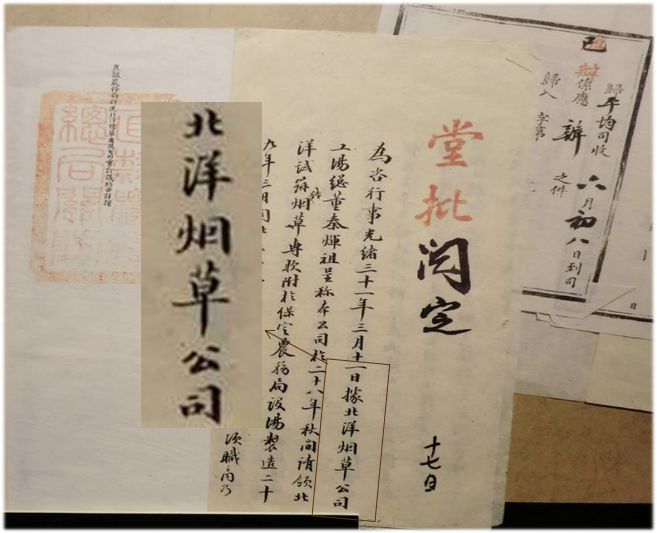 歸平均司收
係應辦之件
歸入 字第
六月初八日到司
堂批
閱定
十七日
為咨行事光緒三十一年三月十一日據北洋烟草公司
工場總董秦輝祖呈称本公司於二十八年秋間請領北
洋試辦烟草專款附於保定農務局設場製造二十
九年三月間
須職商乃
北洋烟草公司